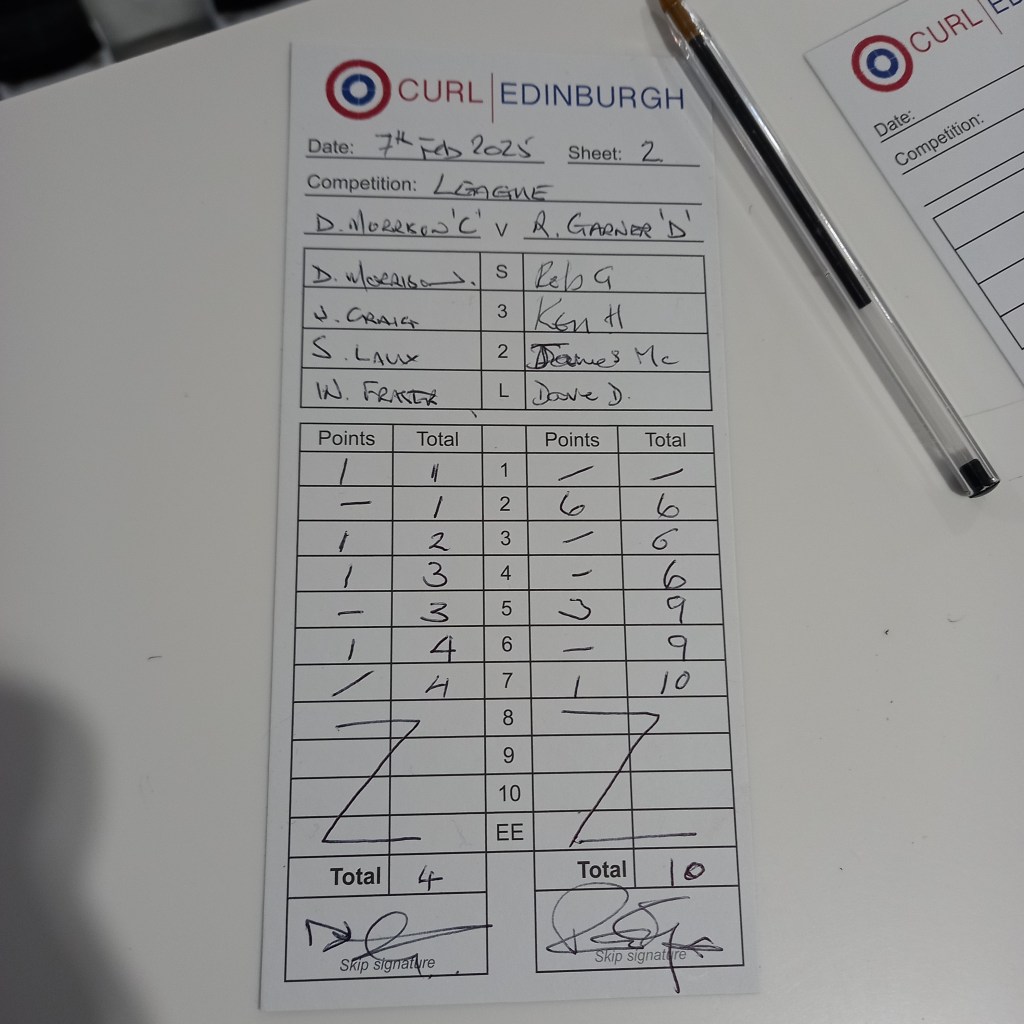 CURL | EDINBURGH
Date: 7th Feb 2025 Sheet: 2
Competition: LEAGUE
D. MORRISON 'C' V R. GARNER 'D'
D. MORRISON. S Rob G
J. CRAIG 3 Ken H
S. LAUX 2 James Mc
W. FRASER L Dave D.
Points Total Points Total
1 1 1 – –
– 1 2 6 6
1 2 3 – 6
1 3 4 – 6
– 3 5 3 9
1 4 6 – 9
/ 4 7 1 10
8
9
10
EE
Total 4 Total 10
Skip signature Skip signature
CURL
Date:
Competition: